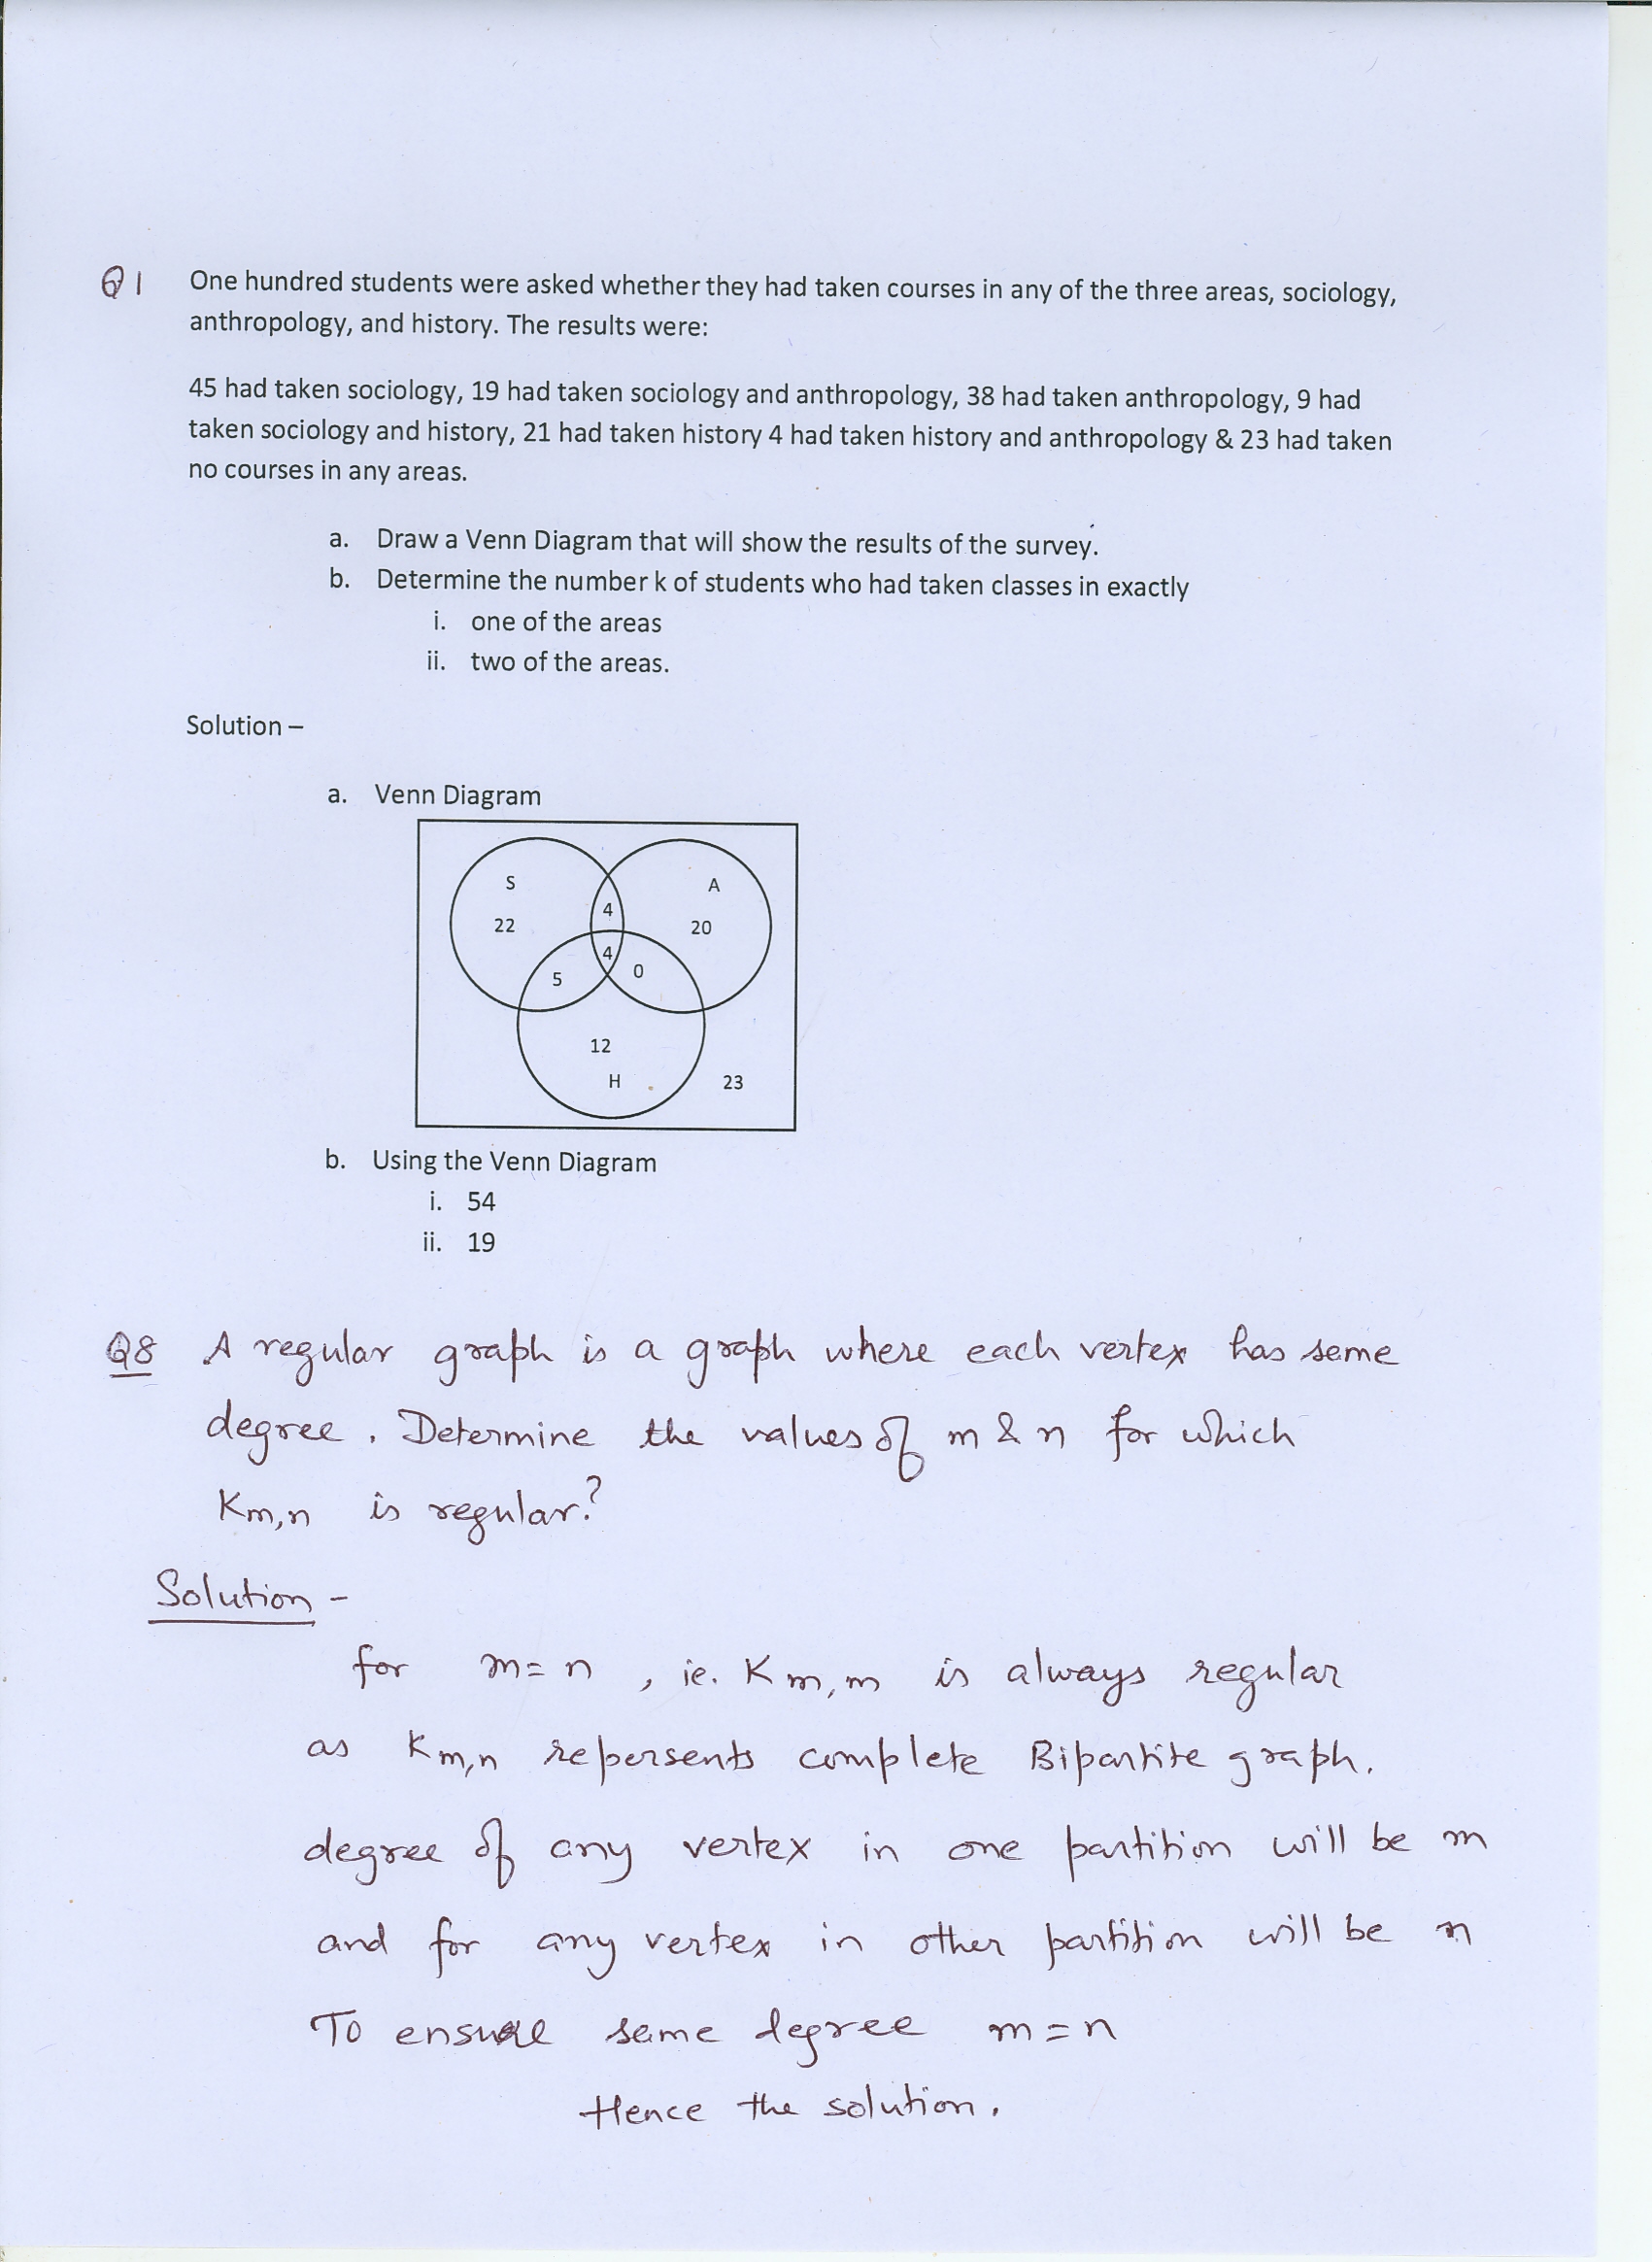 Q1 One hundred students were asked whether they had taken courses in any of the three areas, sociology,
anthropology, and history. The results were:
45 had taken sociology, 19 had taken sociology and anthropology, 38 had taken anthropology, 9 had
taken sociology and history, 21 had taken history 4 had taken history and anthropology & 23 had taken
no courses in any areas.
a. Draw a Venn Diagram that will show the results of the survey.
b. Determine the number k of students who had taken classes in exactly
i. one of the areas
ii. two of the areas.
Solution –
a. Venn Diagram
S
A
4
22
20
4
0
5
12
H
23
b. Using the Venn Diagram
i. 54
ii. 19
Q8 A regular graph is a graph where each vertex has seme
degree. Determine the values of m & n for which
Km,n is regular?
Solution -
for m=n, ie. Km,m is always regular
as Km,n repersents complete Bipartite graph.
degree of any vertex in one partition will be m
and for any vertex in other partition will be n
To ensure seme degree m=n
Hence the solution.